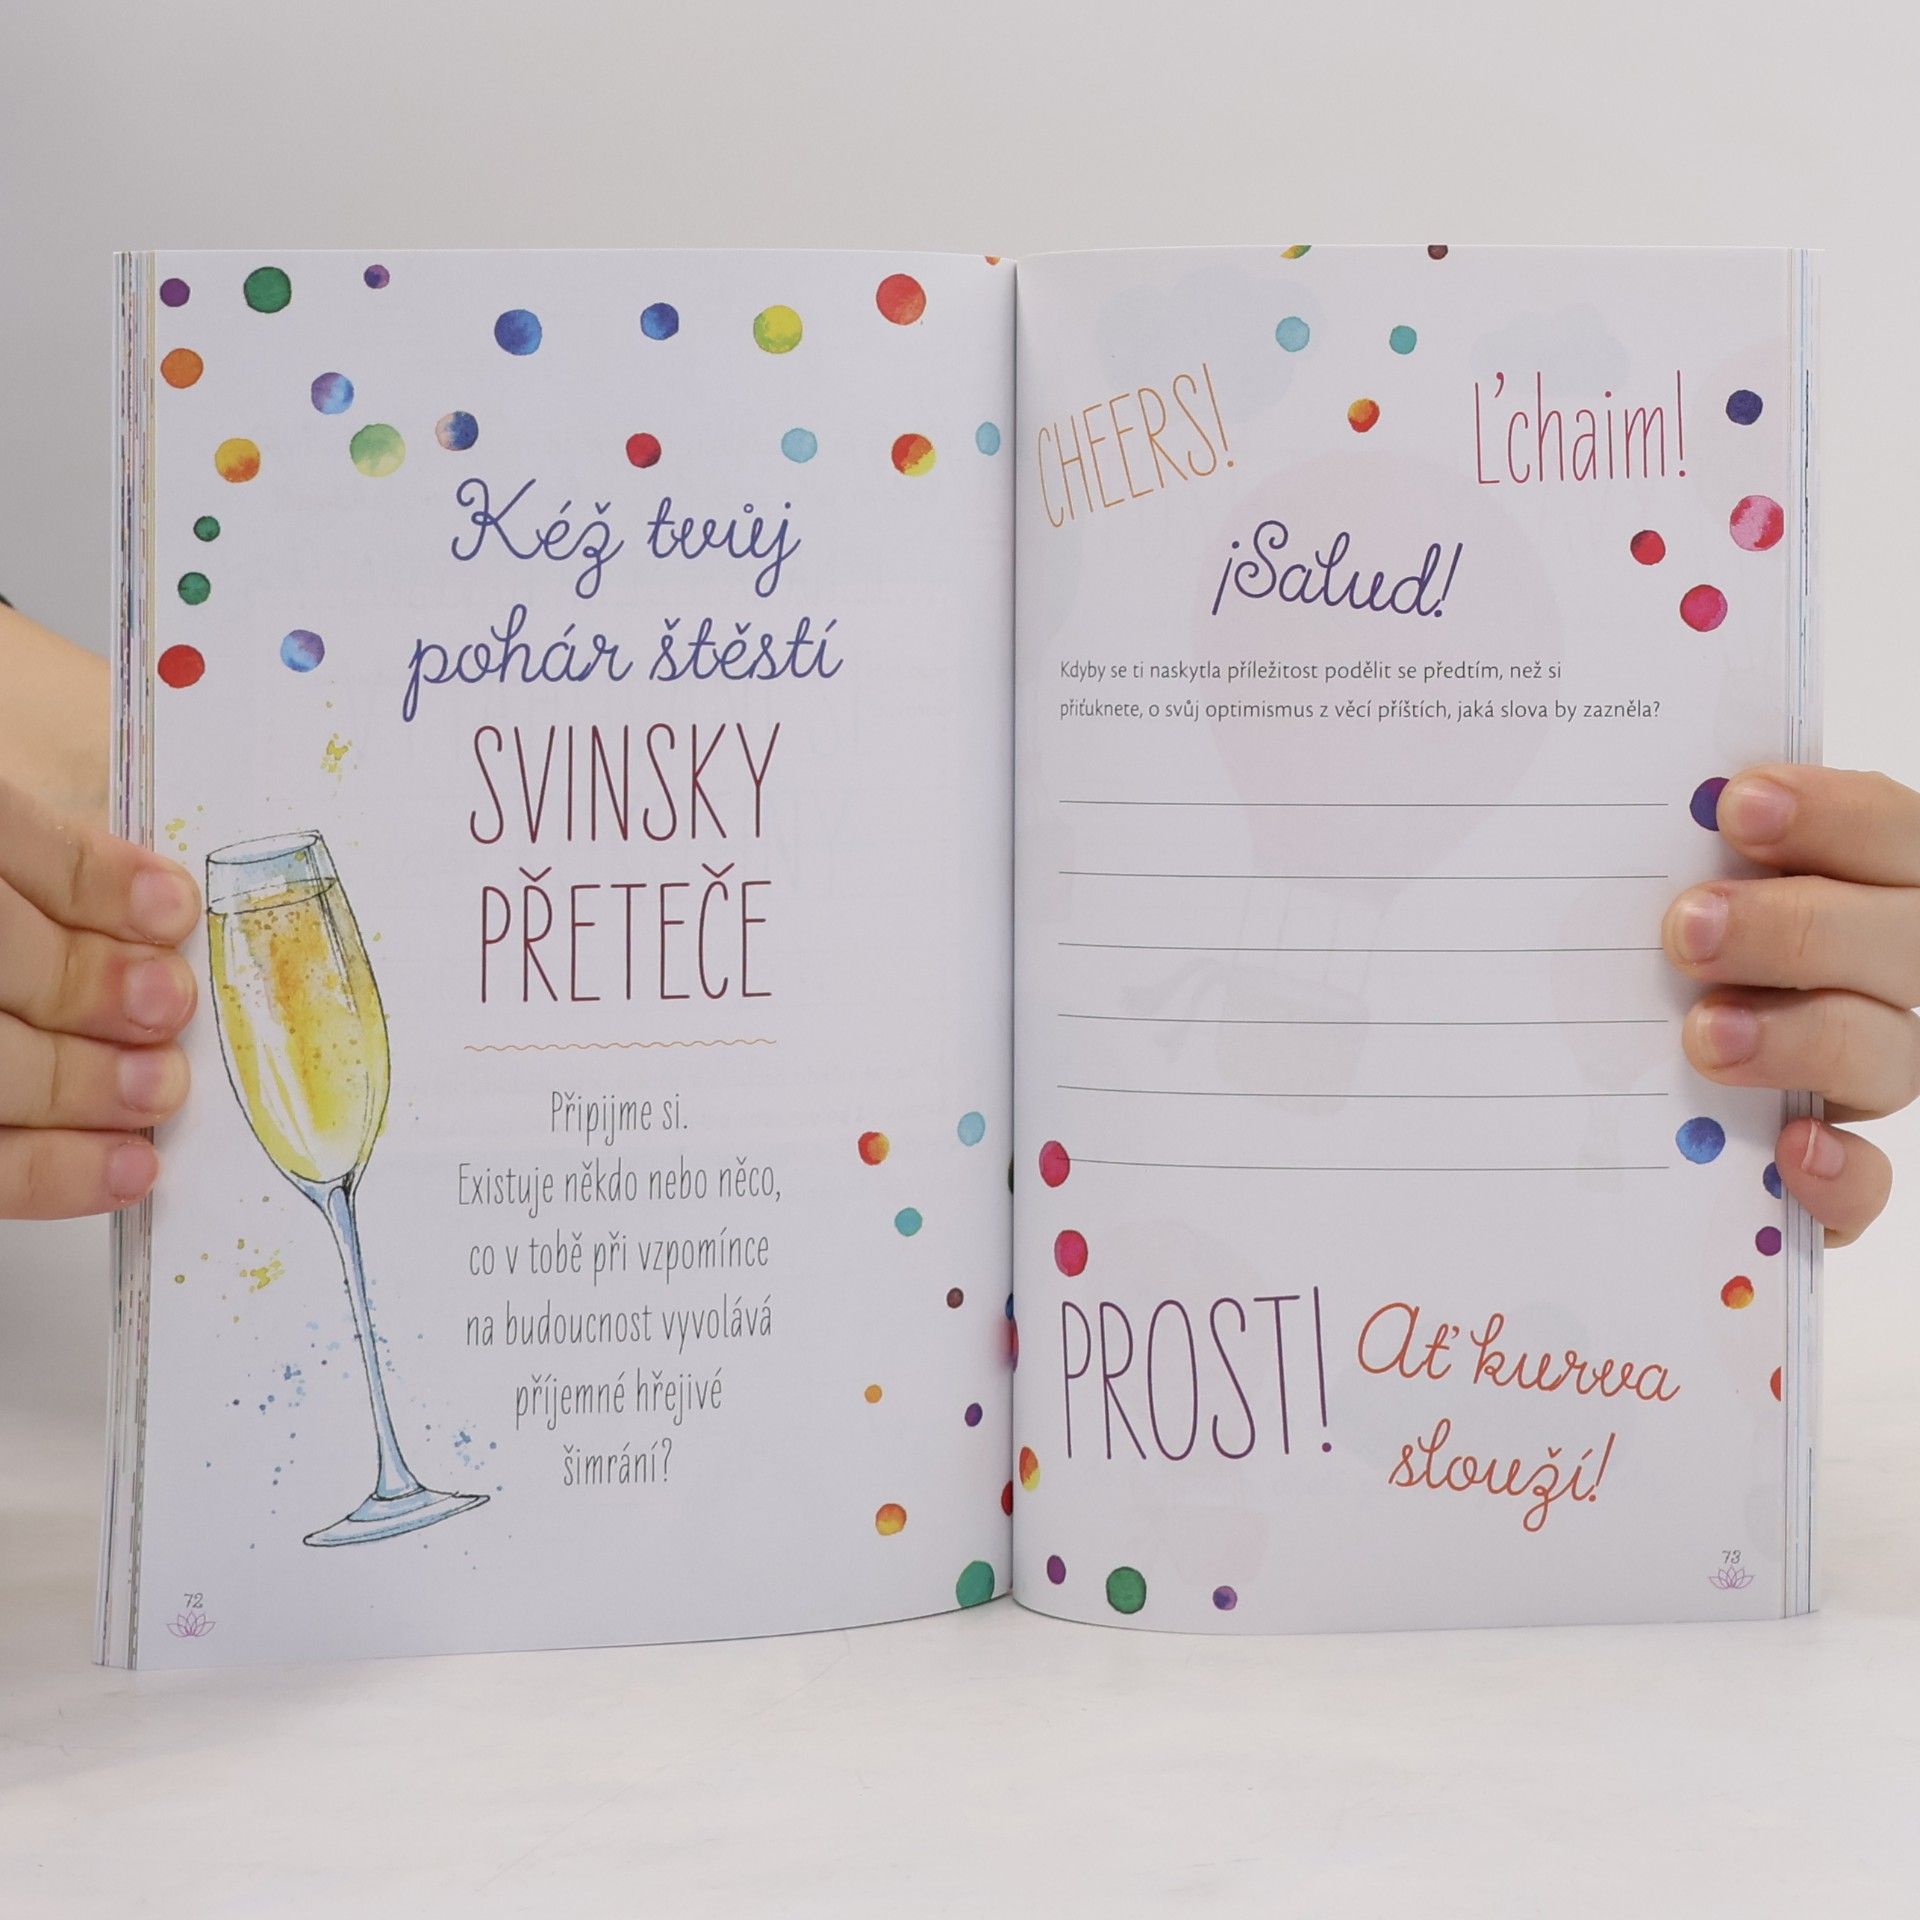 Kéž tvůj
pohár štěstí
SVINSKY
PŘETEČE
Připijme si.
Existuje někdo nebo něco,
co v tobě při vzpomínce
na budoucnost vyvolává
příjemné hřejivé
šimrání?
72
CHEERS!
L'chaim!
¡Salud!
Kdyby se ti naskytla příležitost podělit se předtím, než si
přiťuknete, o svůj optimismus z věcí příštích, jaká slova by zazněla?
PROST!
Ať kurva
slouží!
73